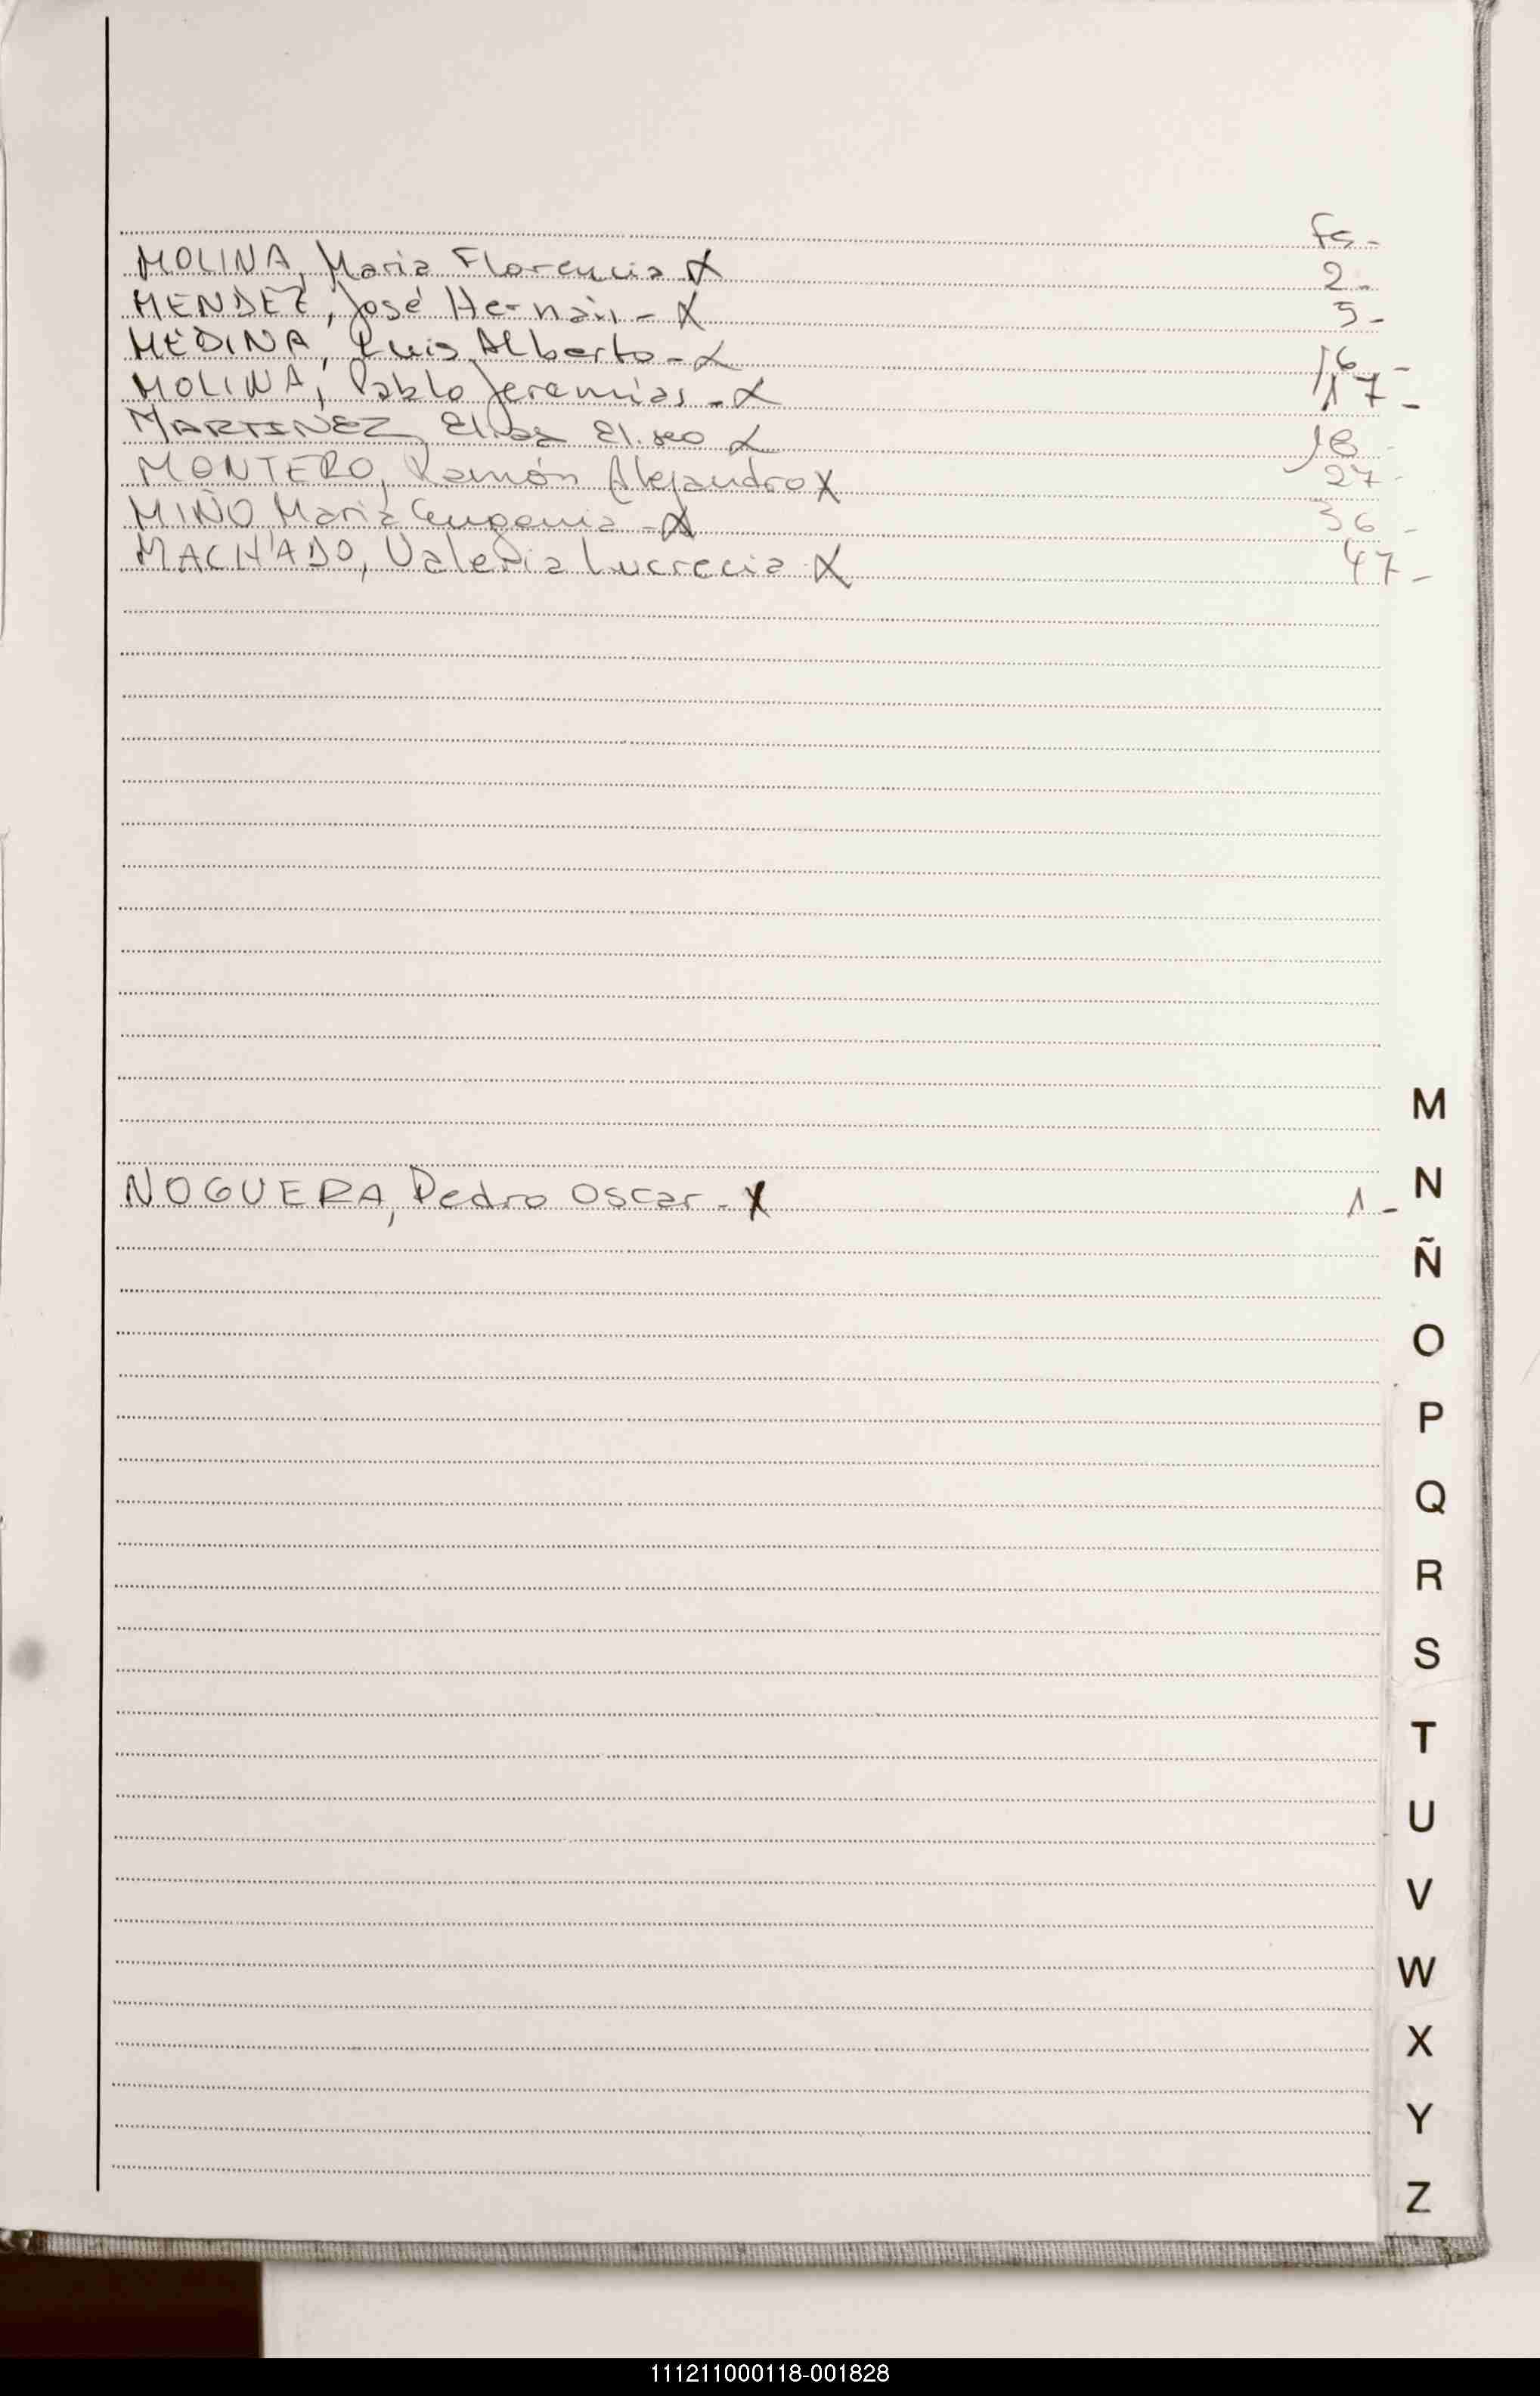 Fs-
MOLINA, Maria Florencia X 2-
MENDEZ, José Hernán - X 5-
MEDINA, Luis Alberto - X 16-
MOLINA, Pablo Jeremías - X 17-
MARTINEZ, Eliseo X 18-
MONTERO, Ramón Alejandro X 27-
MIÑO Maria Eugenia - X 36-
MACHADO, Valeria Lucrecia X 47-
M
NOGUERA, Pedro Oscar - X 1-
N
Ñ
O
P
Q
R
S
T
U
V
W
X
Y
Z
111211000118-001828